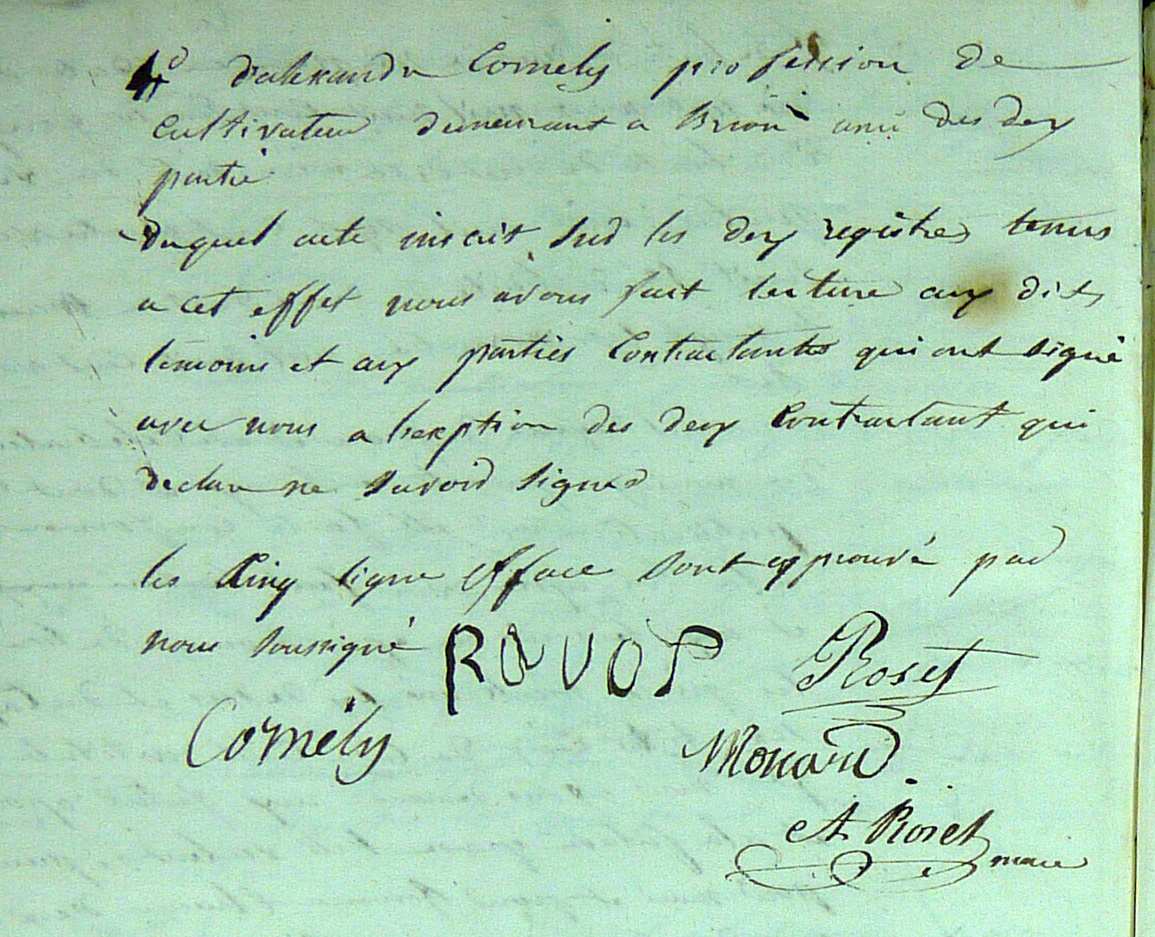 4o d'alexandre Comely profession de
cultivateur demeurant a Brion ami des dex
partie
Duquel acte inscrit sud les dex registres tenus
a cet effet nous avons fait lecture aux dits
temoins et aux parties Contractantes qui ont signé
avec nous a l'exeption des dex Contractant qui
declare ne savoid signed
les Cinq ligne efface sont approuvé pad
nous soussigné RAVOT Roset
Comély Monard
At Roset maire